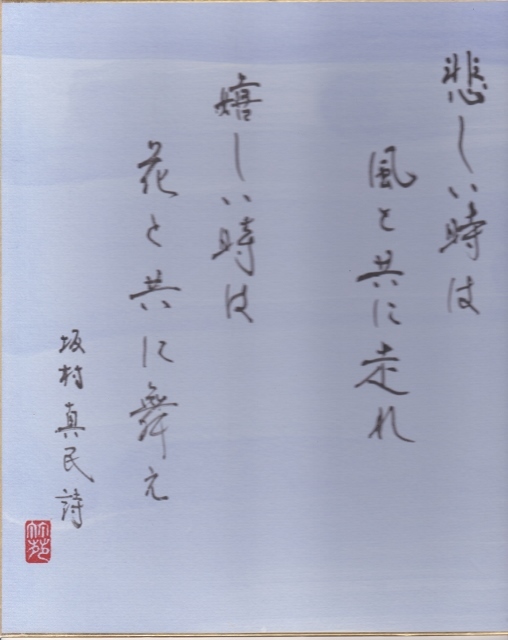 悲しい時は
風と共に走れ
嬉しい時は
花と共に舞え
坂村真民詩